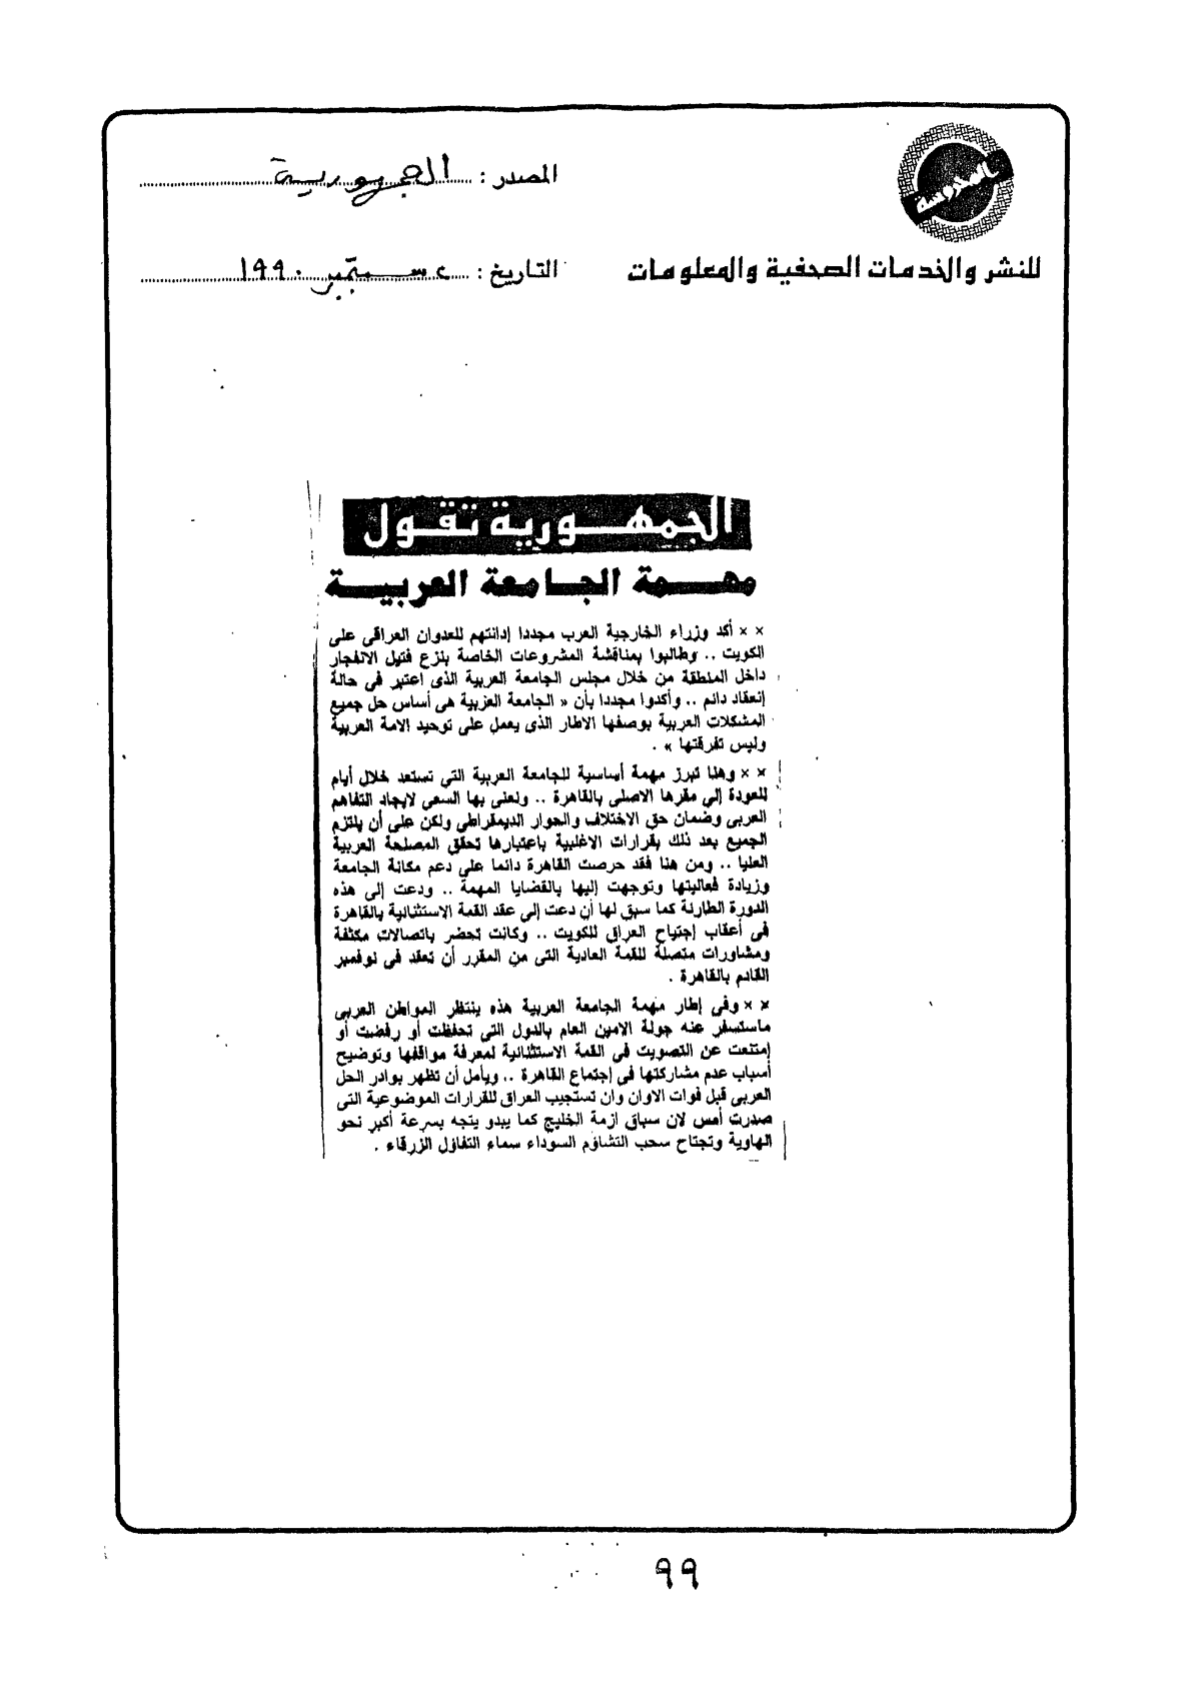 المحروسة
المصدر : الجمهورية
للنشر والخدمات الصحفية والمعلومات
التاريخ : سبتمبر ١٩٩٠
الجمهورية تقول
مهمة الجامعة العربية
×× أكد وزراء الخارجية العرب مجددا إدانتهم للعدوان العراقى على
الكويت .. وطالبوا بمناقشة المشروعات الخاصة بنزع فتيل الانفجار
داخل المنطقة من خلال مجلس الجامعة العربية الذى اعتبر فى حالة
إنعقاد دائم .. وأكدوا مجددا بأن « الجامعة العربية هى أساس حل جميع
المشكلات العربية بوصفها الاطار الذى يعمل على توحيد الامة العربية
وليس تفرقتها » .
×× وهنا تبرز مهمة أساسية للجامعة العربية التي تستعد خلال أيام
للعودة إلى مقرها الاصلى بالقاهرة .. ونعنى بها السعى لايجاد التفاهم
العربى وضمان حق الاختلاف والحوار الديمقراطى ولكن على أن يلتزم
الجميع بعد ذلك بقرارات الاغلبية باعتبارها تحقق المصلحة العربية
العليا .. ومن هنا فقد حرصت القاهرة دائما على دعم مكانة الجامعة
وزيادة فعاليتها وتوجهت إليها بالقضايا المهمة .. ودعت إلى هذه
الدورة الطارئة كما سبق لها أن دعت إلى عقد القمة الاستثنائية بالقاهرة
فى أعقاب إجتياح العراق للكويت .. وكانت تحضر باتصالات مكثفة
ومشاورات متصلة للقمة العادية التى من المقرر أن تعقد فى نوفمبر
القادم بالقاهرة .
×× وفى إطار مهمة الجامعة العربية هذه ينتظر المواطن العربى
ماستسفر عنه جولة الامين العام بالدول التى تحفظت أو رفضت أو
إمتنعت عن التصويت فى القمة الاستثنائية لمعرفة مواقفها وتوضيح
أسباب عدم مشاركتها فى إجتماع القاهرة .. ويأمل أن تظهر بوادر الحل
العربى قبل فوات الاوان وان تستجيب العراق للقرارات الموضوعية التى
صدرت أمس لان سباق ازمة الخليج كما يبدو يتجه بسرعة أكبر نحو
الهاوية وتجتاح سحب التشاؤم السوداء سماء التفاؤل الزرقاء .
٩٩